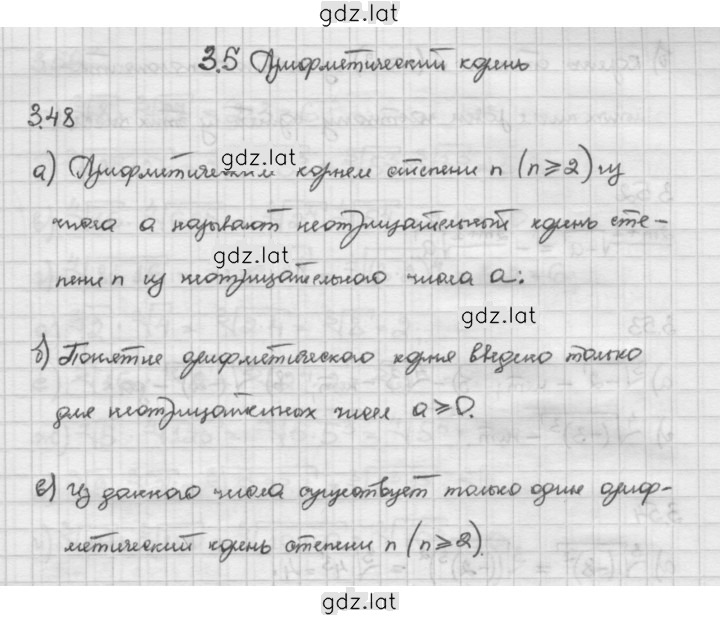 gdz.lat
3.5 Арифметический корень
3.48
а) Арифметическим корнем степени n (n⩾2) из
gdz.lat
числа a называют неотрицательный корень сте-
gdz.lat
пени n из неотрицательного числа a:
gdz.lat
б) Понятие арифметического корня введено только
для неотрицательных чисел a⩾0.
в) Из данного числа существует только один ариф-
метический корень степени n (n⩾2).
gdz.lat